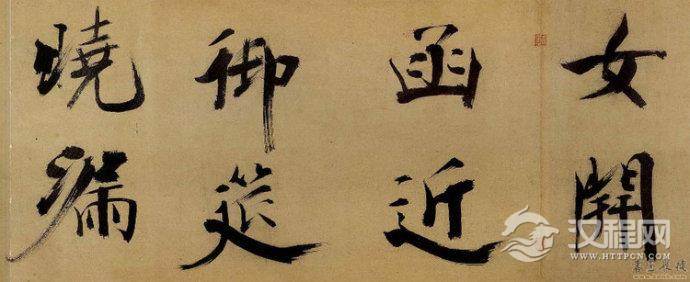 女開
函近
御筵
曉漏
汉程网
WWW.HTTPCN.COM